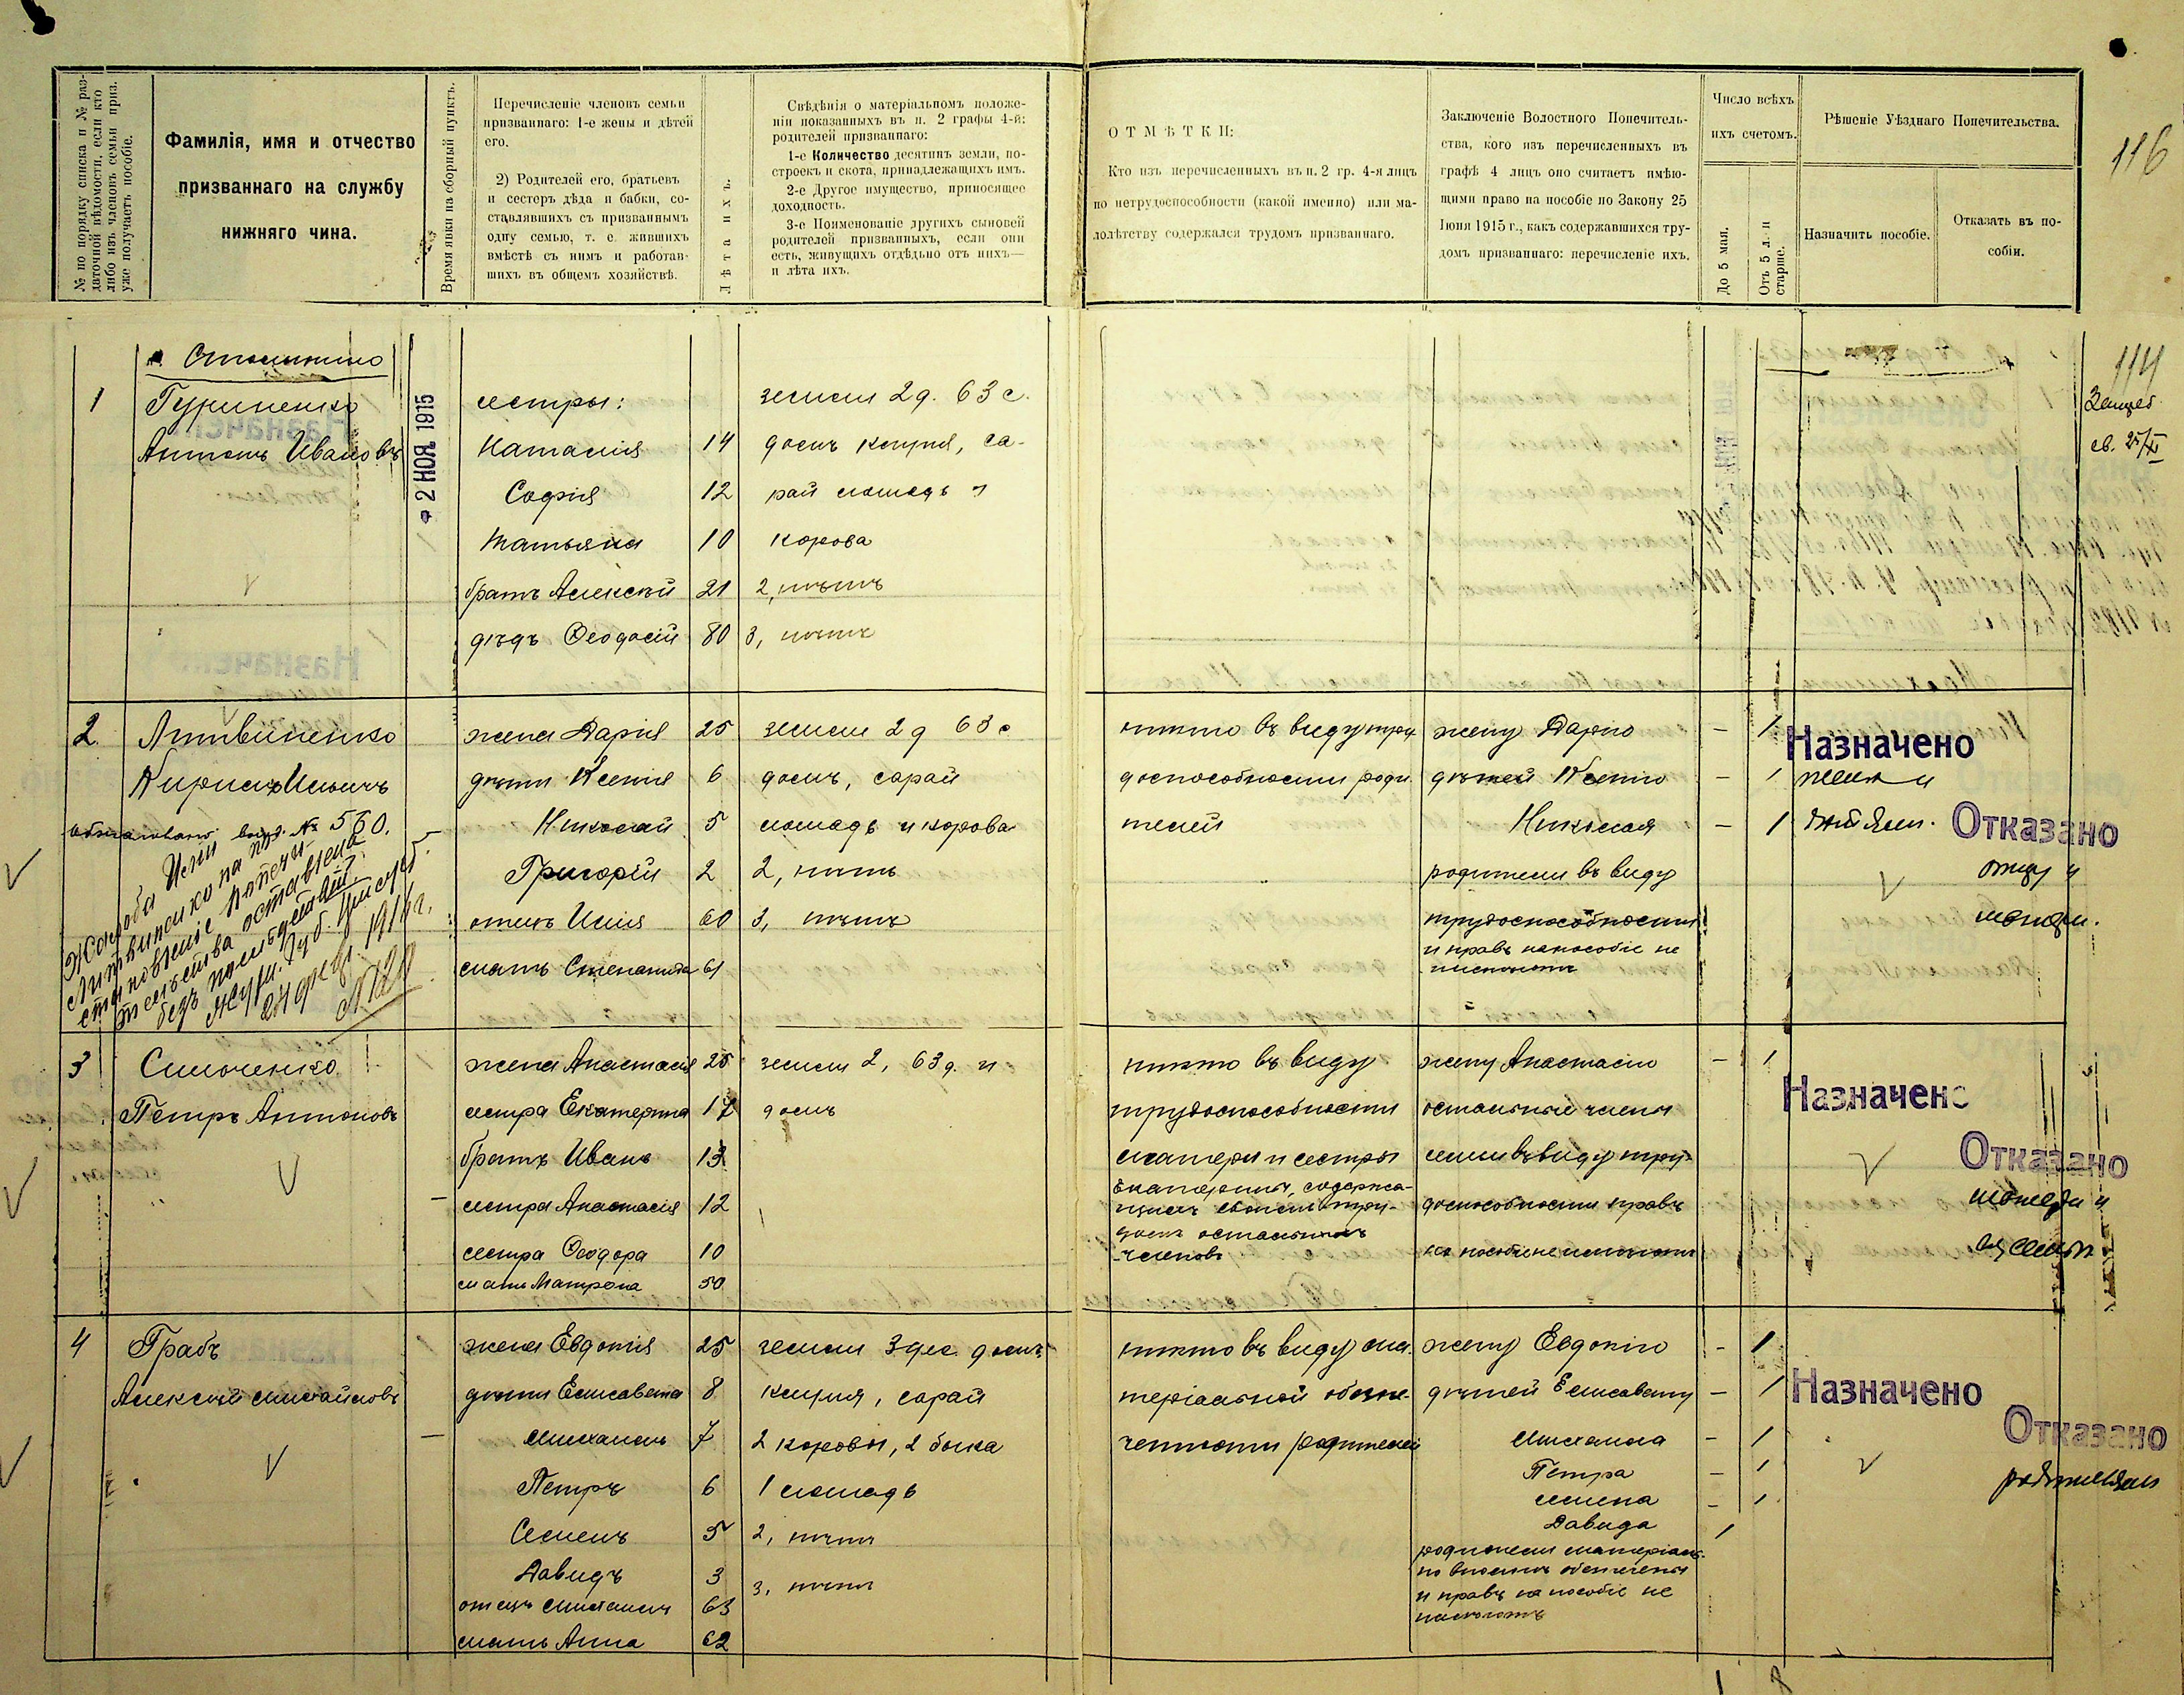 № по порядку списка и № раз-
даточной вѣдомости, если кто
либо изъ членовъ семьи приз.
уже получаетъ пособіе.
Фамилія, имя и отчество
призваннаго на службу
нижняго чина.
Время явки на сборный пунктъ.
Перечисленіе членовъ семьи
призваннаго: 1-е жены и дѣтей
его.
2) Родителей его, братьевъ
и сестеръ дѣда и бабки, со-
ставлявшихъ съ призваннымъ
одну семью, т. е. жившихъ
вмѣстѣ съ нимъ и работав-
шихъ въ общемъ хозяйствѣ.
Лѣта ихъ.
Свѣдѣнія о матеріальномъ положе-
ніи показанныхъ въ п. 2 графы 4-й:
родителей призваннаго:
1-е Количество десятинъ земли, по-
строекъ и скота, принадлежащихъ имъ.
2-е Другое имущество, приносящее
доходность.
3-е Поименованіе другихъ сыновей
родителей призванныхъ, если они
есть, живущихъ отдѣльно отъ нихъ—
и лѣта ихъ.
ОТМѢТКИ:
Кто изъ перечисленныхъ въ п. 2 гр. 4-я лицъ
по нетрудоспособности (какой именно) или ма-
лолѣтству содержался трудомъ призваннаго.
Заключеніе Волостного Попечитель-
ства, кого изъ перечисленныхъ въ
графѣ 4 лицъ оно считаетъ имѣю-
щими право на пособіе по Закону 25
Іюня 1915 г., какъ содержавшихся тру-
домъ призваннаго: перечисленіе ихъ.
Число всѣхъ
ихъ счетомъ.
До 5 мая.
Отъ 5 л. и
старше.
Рѣшеніе Уѣзднаго Попечительства.
Назначить пособіе.
Отказать въ по-
собіи.
116
114
1
Антонъ Ивановъ
2 НОЯ 1915
сестры:
Наталія 14
Софія 12
Татьяна 10
братъ Алексѣй 21
дѣдъ Ѳеодосій 80
земли 2 д. 63 с.
домъ клуня, са-
рай лошадь и
корова
2, нѣтъ
3, нѣтъ
2. Литвиненко
Кирилъ Ильичъ
№ 560.
Жалоба Ильи
Литвиненко на по-
становленіе Попечи-
тельства оставлена
безъ послѣдствій.
жена Дарія 25
дѣти Ксенія 6
Николай 5
Григорій 2
отецъ Илія 60
мать Степанида 61
земли 2 д 63 с
домъ, сарай
лошадь и корова
2, нѣтъ
3, нѣтъ
никто въ виду тру
доспособности роди
телей
жену Дарію
дѣтей Ксенію
Николая
родители въ виду
трудоспособности
и правъ на пособіе не
имѣютъ
— 1
— 1
— 1
Назначено
жена и
дѣтям.
Отказано
отцу и
матери.
3 Симоненко
Петръ Антоновъ
жена Анастасія 25
сестра Екатерина 17
братъ Иванъ 13
сестра Анастасія 12
сестра Ѳеодора 10
мать Матрона 50
земли 2, 63 д. и
домъ
никто въ виду
трудоспособности
матери и сестры
Екатерины, содержа-
щихъ своимъ тру-
домъ остальныхъ
членовъ
жену Анастасію
остальные члены
семьи въ виду тру-
доспособности правъ
на пособіе не имѣютъ
— 1
Назначено
Отказано
матери и
4 Грабъ
Алексѣй Михайловъ
жена Евдокія 25
дѣти Елисавета 8
Михаилъ 7
Петръ 6
Семенъ 5
Давидъ 3
отецъ Михаилъ 63
мать Анна 62
земли 3 дес. домъ
клуня, сарай
2 коровы, 2 быка
1 лошадь
2, нѣтъ
3, нѣтъ
никто въ виду ма
теріальной обезпе-
ченности родителей
жену Евдокію
дѣтей Елисавету
Михаила
Петра
Семена
Давида
родители матеріаль-
но вполнѣ обезпечены
и правъ на пособіе не
имѣютъ
— 1
— 1
— 1
— 1
— 1
1
Назначено
Отказано
родителям
1 8